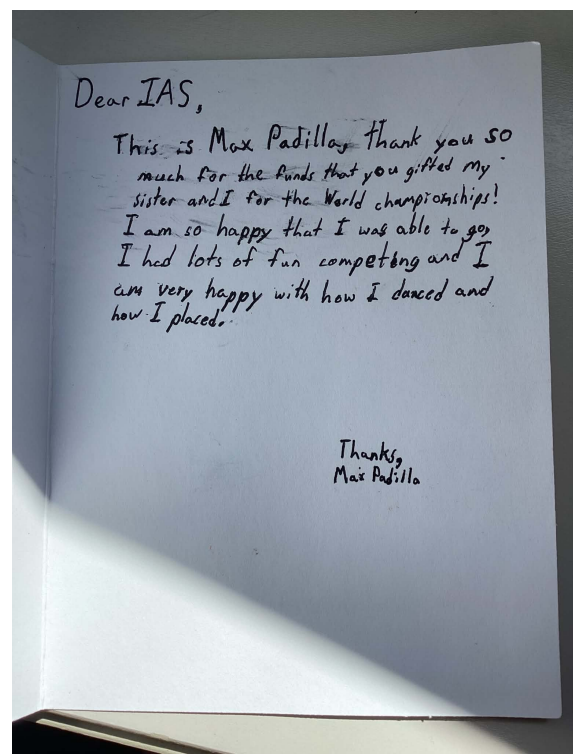 Dear IAS,
This is Max Padilla, thank you so
much for the funds that you gifted my
sister and I for the World championships!
I am so happy that I was able to go,
I had lots of fun competing and I
am very happy with how I danced and
how I placed.
Thanks,
Max Padilla